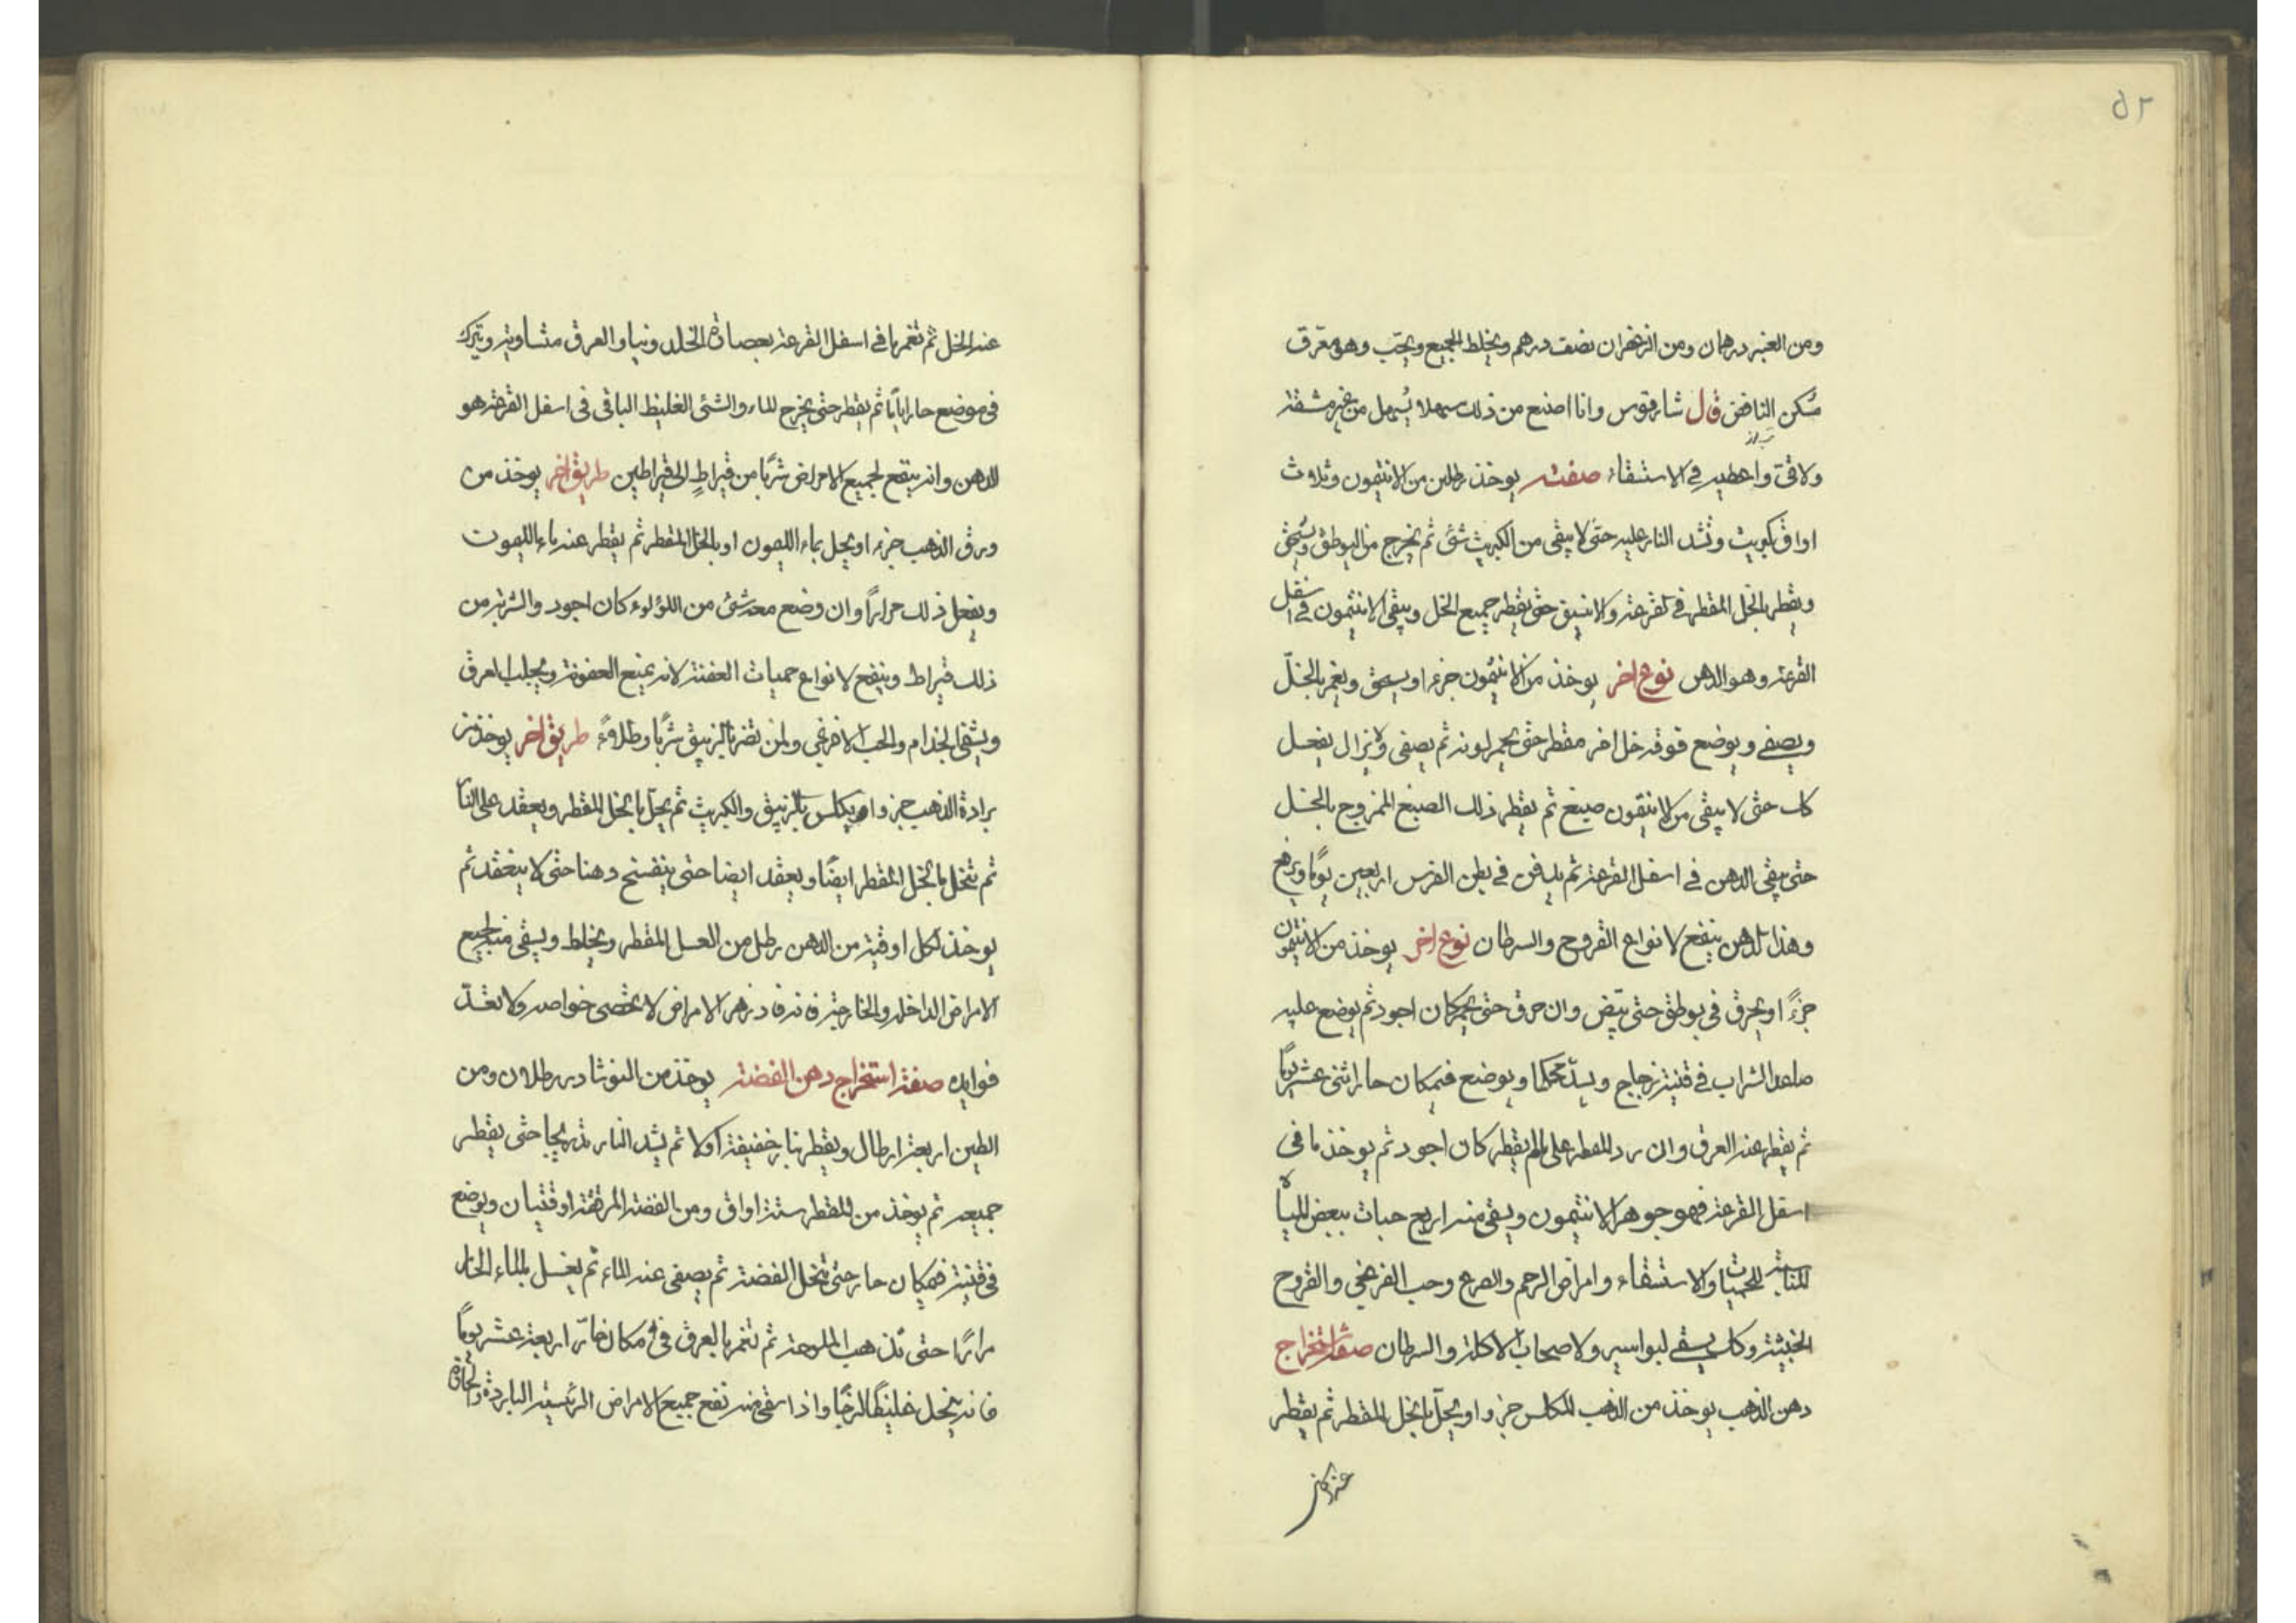 ٥٢
ومن العنبر درهمان ومن الزعفران نصف درهم ويخلط الجميع ويحبب وهو معرّق
مُسكن النافض قال شارقوس وانا اصنع من ذلك سهلا يُسهل من غير مشقة
ولا قئ واعطيه في الاستسقاء صفته يوخذ رطلين من الانتيمون وثلاث
اواق كبريت وتشد النار عليه حتى لا يبقى من الكبريت شئ ثم يخرج من البوطق ويُسحق
ويقطر بالخل المقطر في القرعة والانبيق حتى يقطر جميع الخل ويبقى الانتيمون في اسفل
القرعة وهو الدهن نوع اخر يوخذ من الانتيمون جزءا ويسحق ويغمر بالخلّ
ويصفى ويوضع فوقه خل اخر مقطر حتى يحمر لونه ثم يصفى ولا يزال يفعل
كك حتى لا يبقى من الانتيمون صبغ ثم يقطر ذلك الصبغ الممزوج بالخل
حتى يبقى الدهن في اسفل القرعة ثم يدفن في بطن الفرس اربعين يوما ويرفع
وهذا الدهن ينفع لانواع القروح والسرطان نوع اخر يوخذ من الانتيمون
جزءً او يحرق في بوطق حتى يبيّض وان حرق حتى يحمر كان اجود ثم يوضع عليه
صاعد الشراب في قنينة زجاج ويسدّ محكما ويوضع في مكان حار اثنى عشر يوماً
ثم يقطر عنه العرق وان رد المقطر على مالم يقطر كان اجود ثم يوخذ ما في
اسفل القرعة فهو جوهر الانتيمون ويسقى منه اربع حبات ببعض المياه
المناسبة للحميات والاستسقاء وامراض الرحم والصرع وحب الفرنجي والقروح
الخبيثة وكك يسقى لبواسير ولاصحاب الاكلة والسرطان صفة استخراج
دهن الذهب يوخذ من الذهب المكلس جزوا ويحلّ بالخل المقطر ثم يقطر
عنه الخل
عنه الخل ثم تغمرها في اسفل القرعة بعصارة الخلدونيا والعرق متساوية ويترك
في موضع حار اياماً ثم يقطر حتى يخرج الماء والشئ الغليظ الباقي في اسفل القرعة هو
الدهن وانه ينفع لجميع الامراض شربًا من قيراطٍ الى قيراطين طريق اخر يوخذ من
ورق الذهب جزء او يحل بماء الليمون او بالخل المقطر ثم يقطر عنه ماء الليمون
ويفعل ذلك مراراً وان وضع معه شئ من اللؤلوء كان اجود والشربة من
ذلك قيراط وينفع لانواع حميات العفنة لانه يمنع العفونة ويجلب العرق
ويشفى الجذام والحب الافرنجي ولمن تضر بالزيبق شربًا وطلاءً طريق اخر يوخذ من
برادة الذهب جزوا ويكلس بالزيبق والكبريت ثم يحلّ بالخل المقطر ويعقد على النار
ثم تنحل بالخل المقطر ايضًا ويعقد ايضا حتى ينفسخ دهنا حتى لا ينعقد ثم
يوخذ لكل اوقية من الدهن رطل من العسل المقطر ويخلط ويسقى منه لجميع
الامراض الداخلة والخارجة فانه فادزهر الامراض لا يحصى خواصه ولا تعدّ
فوايده صفة استخراج دهن الفضة يوخذ من النوشادر رطلان ومن
الطين اربعة ارطال ويقطر بنار خفيفة اولا ثم يشد النار تدريجا حتى يقطر
جميعه ثم يوخذ من المقطر ستة اواق ومن الفضة المرققة اوقيتان ويوضع
في قنينة في مكان حار حتى تنحل الفضة ثم يصفى عنه الماء ثم يغسل بالماء الحار
مرارًا حتى تذهب الملوحة ثم تغمر بالعرق في مكان حارّ اربعة عشر يوماً
فانه ينحل غليظًا لزجًا واذا سقى منه نفع جميع الامراض الرئيسية الباردة والحارة